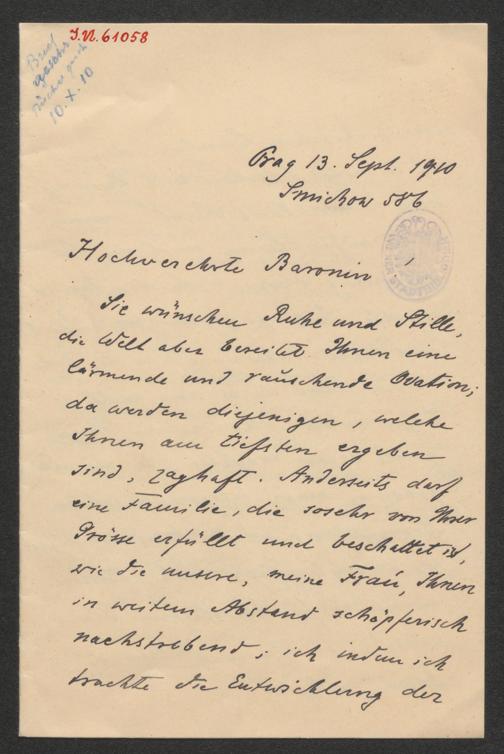 I.N. 61058
Brief
10. X. 10
Prag 13. Sept. 1910
Smichow 586
Hochverehrte Baronin!
Sie wünschen Ruhe und Stille,
die Welt aber bereitet Ihnen eine
lärmende und rauschende Ovation;
da werden diejenigen, welche
Ihnen am tiefsten ergeben
sind, zaghaft. Anderseits darf
eine Familie, die sosehr von Ihrer
Grösse erfüllt und beschattet ist,
wie die unsere, meine Frau, Ihnen
in weitem Abstand schöpferisch
nachstrebend; ich indem ich
trachte die Entwicklung der